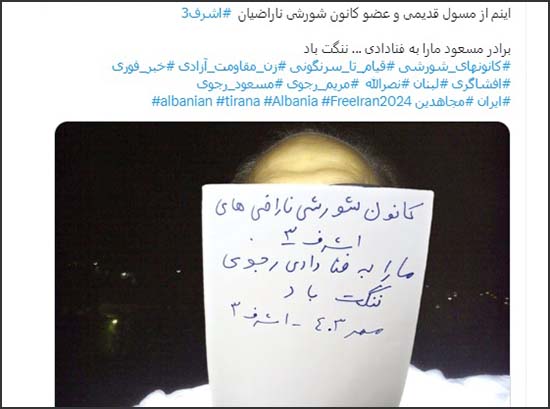 اینم از مسول قدیمی و عضو کانون شورشی ناراضیان #اشرف3
برادر مسعود مارا به فنادادی ... ننگت باد
#کانونهای_شورشی #قیام_تا_سرنگونی #زن_مقاومت_آزادی #خبر_فوری
#افشاگری #لبنان #نصرالله #مریم_رجوی #مسعود_رجوی
#ایران #مجاهدین #albanian #tirana #Albania #FreeIran2024
کانون شورشی ناراضی های
اشرف ۳
ما را به فنا دادی رجوی
ننگت باد
مهر ۴۰۳ - اشرف ۳